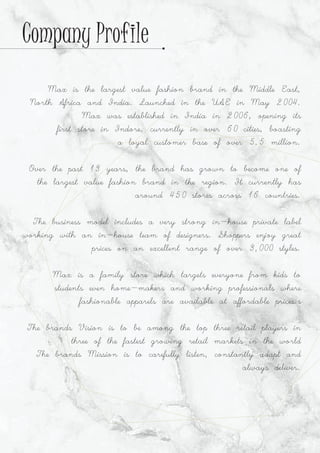 Company Profile
Max is the largest value fashion brand in the Middle East,
North Africa and India. Launched in the UAE in May 2004.
Max was established in India in 2006, opening its
first store in Indore, currently in over 60 cities, boasting
a loyal customer base of over 5.5 million.
Over the past 13 years, the brand has grown to become one of
the largest value fashion brand in the region. It currently has
around 450 stores across 16 countries.
The business model includes a very strong in-house private label
working with an in-house team of designers. Shoppers enjoy great
prices on an excellent range of over 3,000 styles.
Max is a family store which targets everyone from kids to
students even home-makers and working professionals where
fashionable apparels are available at affordable price.s
The brands Vision is to be among the top three retail players in
three of the fastest growing retail markets in the world
The brands Mission is to carefully listen, constantly adapt and
always deliver.